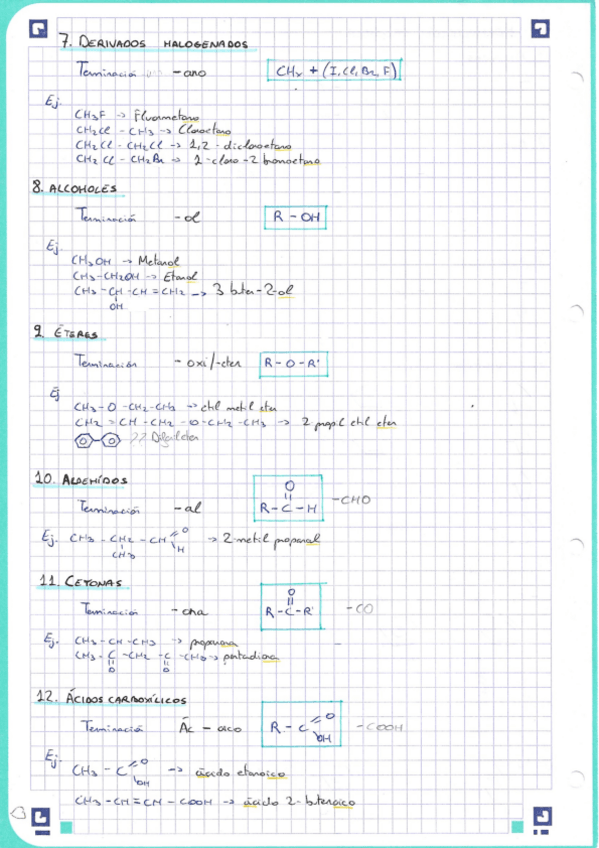 7. DERIVADOS HALOGENADOS
Terminación -ano CHx + (I, Cl, Br, F)
Ej.
CH3F -> Fluormetano
CH2Cl - CH3 -> Cloroetano
CH2Cl - CH2Cl -> 1,2-dicloroetano
CH2Cl - CH2Br -> 1-cloro-2 bromoetano
8. ALCOHOLES
Terminación -ol R - OH
Ej.
CH3OH -> Metanol
CH3-CH2OH -> Etanol
CH3-CH-CH=CH2 -> 3 buten-2-ol
OH
9. ÉTERES
Terminación -oxi/-eter R-O-R'
Ej
CH3-O-CH2-CH3 -> etil metil eter
CH2=CH-CH2-O-CH2-CH3 -> 2 propil etil eter
10. ALDEHÍDOS
Terminación -al R-C-H -CHO
O
Ej. CH3-CH2-CH O H -> 2-metil propanal
CH3
11. CETONAS
Terminación -ona R-C-R' -CO
O
Ej. CH3-CH-CH3 -> propanona
CH3-C-CH2-C-CH3 -> pentadiona
O O
12. ÁCIDOS CARBOXÍLICOS
Terminación Ác - oico R-C O OH -COOH
Ej.
CH3-C O OH -> ácido etanoico
CH3-CH=CH-COOH -> ácido 2-butenoico